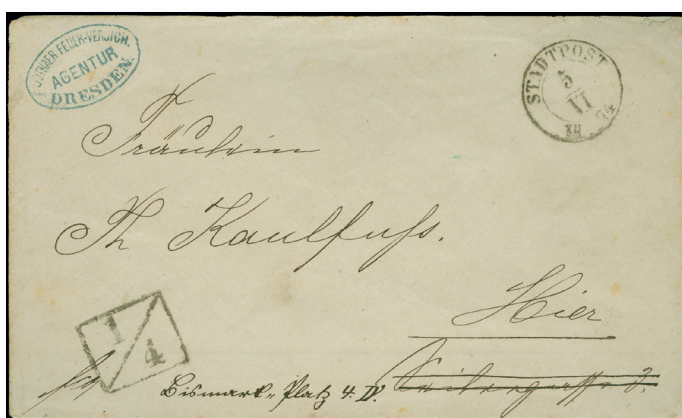 GOTHAER FEUER-VERSICH.
AGENTUR
DRESDEN.
STADTPOST
5
VI
XII
74
Fräulein
Th Kaulfuß.
Hier
1/4
Bismark-Platz 4. IV.